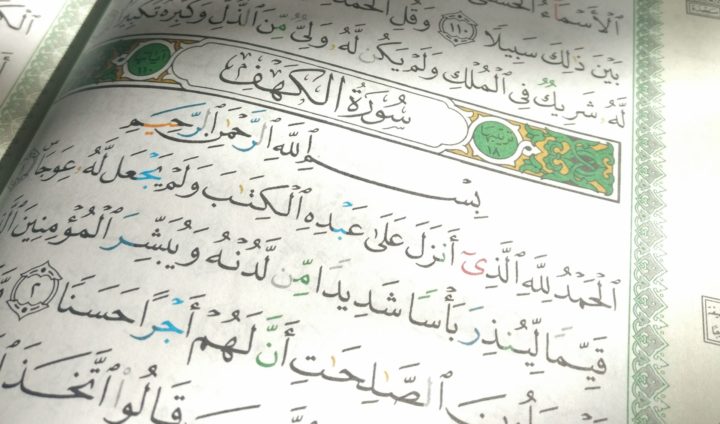 ٱلْأَسْمَآءُ ٱلْحُسْنَىٰ
بَيْنَ ذَٰلِكَ سَبِيلًا ١١٠ وَقُلِ ٱلْحَمْدُ
لَّهُۥ شَرِيكٌ فِى ٱلْمُلْكِ وَلَمْ يَكُن لَّهُۥ وَلِىٌّ مِّنَ ٱلذُّلِّ وَكَبِّرْهُ تَكْبِيرًا
سُورَةُ الكَهْفِ
ترتيبها ١٨
بِسْمِ ٱللَّهِ ٱلرَّحْمَٰنِ ٱلرَّحِيمِ
ٱلْحَمْدُ لِلَّهِ ٱلَّذِىٓ أَنزَلَ عَلَىٰ عَبْدِهِ ٱلْكِتَٰبَ وَلَمْ يَجْعَل لَّهُۥ عِوَجَا
قَيِّمًا لِّيُنذِرَ بَأْسًا شَدِيدًا مِّن لَّدُنْهُ وَيُبَشِّرَ ٱلْمُؤْمِنِينَ
ٱلصَّٰلِحَٰتِ أَنَّ لَهُمْ أَجْرًا حَسَنًا ٢
قَالُوا۟ ٱتَّخَذَ